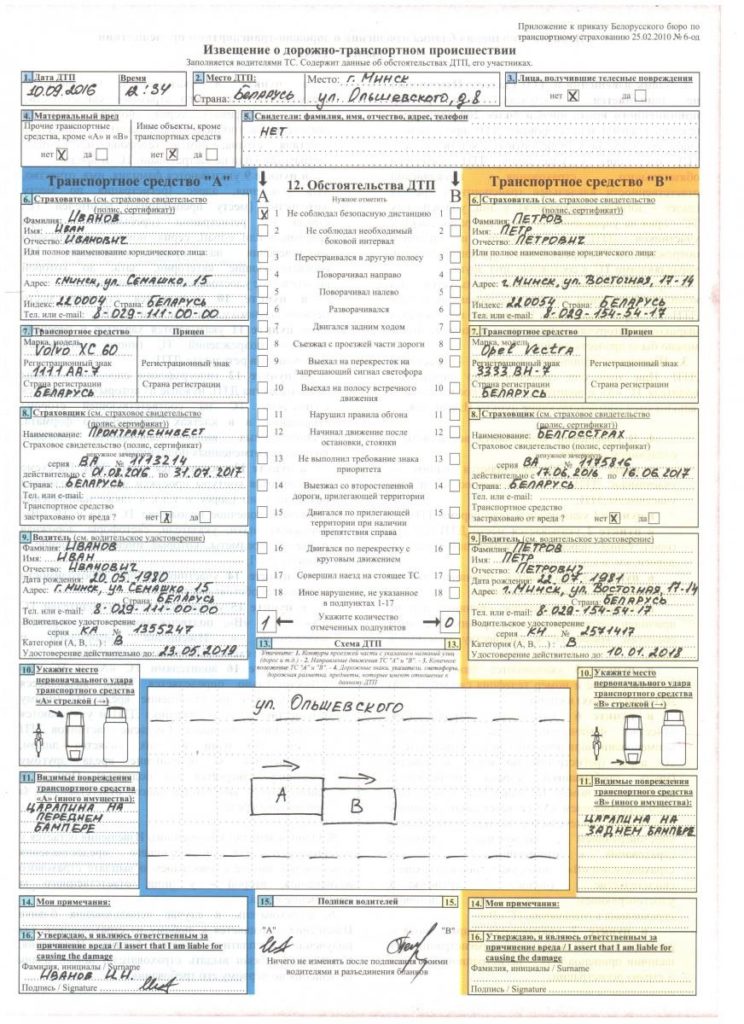 Приложение к приказу Белорусского бюро по
транспортному страхованию 25.02.2010 № 6-од
Извещение о дорожно-транспортном происшествии
Заполняется водителями ТС. Содержит данные об обстоятельствах ДТП, его участниках.
1. Дата ДТП Время
10.09.2016 12:34
2. Место ДТП: Место: г. Минск
Страна: Беларусь ул. Ольшевского, д. 8
3. Лица, получившие телесные повреждения
нет X да
4. Материальный вред
Прочие транспортные средства, кроме «А» и «В»
нет X да
Иные объекты, кроме транспортных средств
нет X да
5. Свидетели: фамилия, имя, отчество, адрес, телефон
НЕТ
Транспортное средство "А"
6. Страхователь (см. страховое свидетельство
(полис, сертификат))
Фамилия: Иванов
Имя: Иван
Отчество: Иванович
Или полное наименование юридического лица:
Адрес: г. Минск, ул. Семашко, 15
Индекс: 220004 Страна: Беларусь
Тел. или e-mail: 8-029-111-00-00
7. Транспортное средство Прицеп
Марка, модель
Volvo XC 60
Регистрационный знак Регистрационный знак
1111 АА-7
Страна регистрации Страна регистрации
Беларусь
8. Страховщик (см. страховое свидетельство
(полис, сертификат))
Наименование: Промтрансинвест
Страховое свидетельство (полис, сертификат)
ненужное зачеркнуть
серия ВА № 1113214
действительно с 01.08.2016 по 31.07.2017
Страна: Беларусь
Тел. или e-mail:
Транспортное средство
застраховано от вреда ? нет X да
9. Водитель (см. водительское удостоверение)
Фамилия: Иванов
Имя: Иван
Отчество: Иванович
Дата рождения: 20.05.1980
Адрес: г. Минск, ул. Семашко, 15
Страна: Беларусь
Тел. или e-mail: 8-029-111-00-00
Водительское удостоверение
серия КА № 1355247
Категория (А, В, ...) : В
Удостоверение действительно до: 23.05.2019
А В
12. Обстоятельства ДТП
Нужное отметить
X 1 Не соблюдал безопасную дистанцию 1
2 Не соблюдал необходимый боковой интервал 2
3 Перестраивался в другую полосу 3
4 Поворачивал направо 4
5 Поворачивал налево 5
6 Разворачивался 6
7 Двигался задним ходом 7
8 Съезжал с проезжей части дороги 8
9 Выехал на перекресток на запрещающий сигнал светофора 9
10 Выехал на полосу встречного движения 10
11 Нарушил правила обгона 11
12 Начинал движение после остановки, стоянки 12
13 Не выполнил требование знака приоритета 13
14 Выезжал со второстепенной дороги, прилегающей территории 14
15 Двигался по прилегающей территории при наличии препятствия справа 15
16 Двигался по перекрестку с круговым движением 16
17 Совершил наезд на стоящее ТС 17
18 Иное нарушение, не указанное в подпунктах 1-17 18
1 Укажите количество отмеченных подпунктов 0
Транспортное средство "В"
6. Страхователь (см. страховое свидетельство
(полис, сертификат))
Фамилия: Петров
Имя: Петр
Отчество: Петрович
Или полное наименование юридического лица:
Адрес: г. Минск, ул. Восточная, 17-14
Индекс: 220054 Страна: Беларусь
Тел. или e-mail: 8-029-154-54-17
7. Транспортное средство Прицеп
Марка, модель
Opel Vectra
Регистрационный знак Регистрационный знак
3333 ВН-7
Страна регистрации Страна регистрации
Беларусь
8. Страховщик (см. страховое свидетельство
(полис, сертификат))
Наименование: Белгосстрах
Страховое свидетельство (полис, сертификат)
ненужное зачеркнуть
серия ВА № 1175816
действительно с 17.06.2016 по 16.06.2017
Страна: Беларусь
Тел. или e-mail:
Транспортное средство
застраховано от вреда ? нет X да
9. Водитель (см. водительское удостоверение)
Фамилия: Петров
Имя: Петр
Отчество: Петрович
Дата рождения: 22.07.1981
Адрес: г. Минск, ул. Восточная, 17-14
Страна: Беларусь
Тел. или e-mail: 8-029-154-54-17
Водительское удостоверение
серия КН № 2571417
Категория (А, В, ...) : В
Удостоверение действительно до: 10.01.2018
13. Схема ДТП 13.
Уточните: 1. Контуры проезжей части с указанием названий улиц
(дорог и т.д.) - 2. Направление движения ТС "А" и "В" - 3. Конечное
положение ТС "А" и "В" - 4. Дорожные знаки, указатели, светофоры,
дорожная разметка, предметы, которые имеют отношение к
данному ДТП
ул. Ольшевского
А
В
10. Укажите место
первоначального удара
транспортного средства
«А» стрелкой (→)
10. Укажите место
первоначального удара
транспортного средства
«В» стрелкой (→)
11. Видимые повреждения
транспортного средства
«А» (иного имущества):
Царапина на
переднем
бампере
11. Видимые повреждения
транспортного средства
«В» (иного имущества):
Царапина на
заднем бампере
14. Мои примечания:
16. Утверждаю, я являюсь ответственным за
причинение вреда / I assert that I am liable for
causing the damage
Фамилия, инициалы / Surname
Иванов И.И.
Подпись / Signature
15. Подписи водителей 15.
"А" "В"
Ничего не изменять после подписания обоими
водителями и разъединения бланков
14. Мои примечания:
16. Утверждаю, я являюсь ответственным за
причинение вреда / I assert that I am liable for
causing the damage
Фамилия, инициалы / Surname
Подпись / Signature